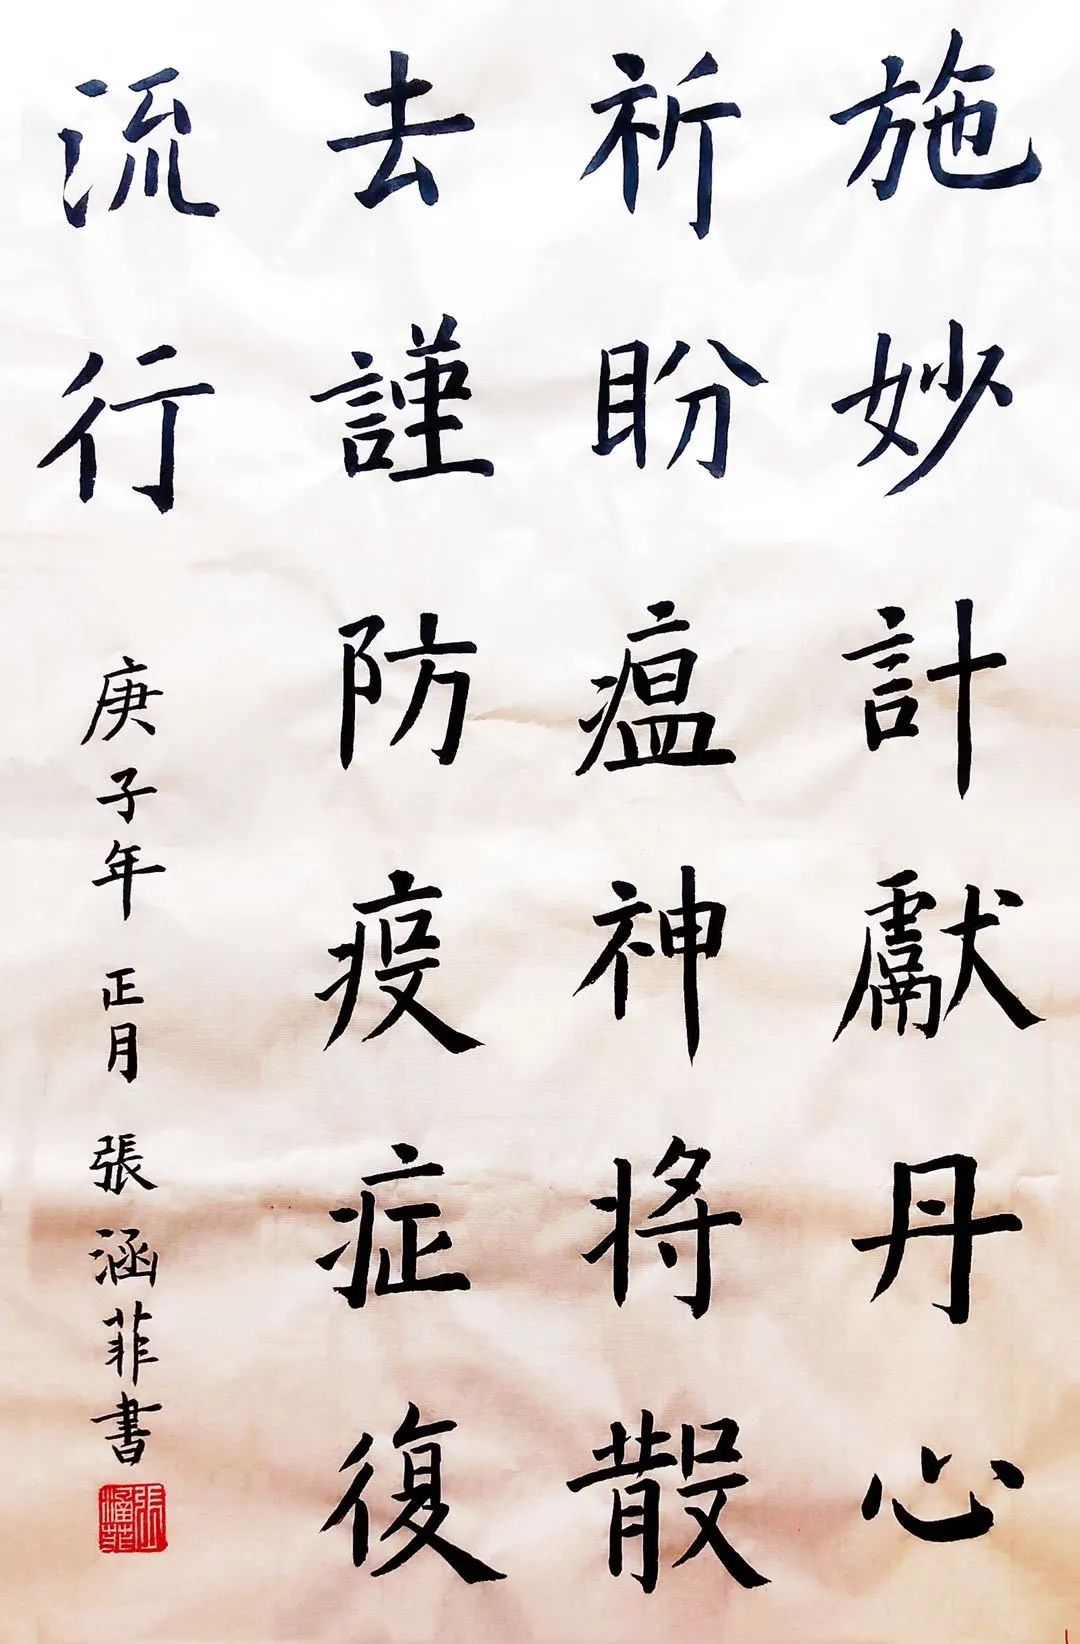 施妙計獻丹心
祈盼瘟神將散
去謹防疫症復
流行
庚子年正月張涵菲書
張涵菲